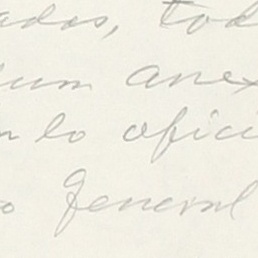 ados, tod
ium anex
n lo ofici
o General